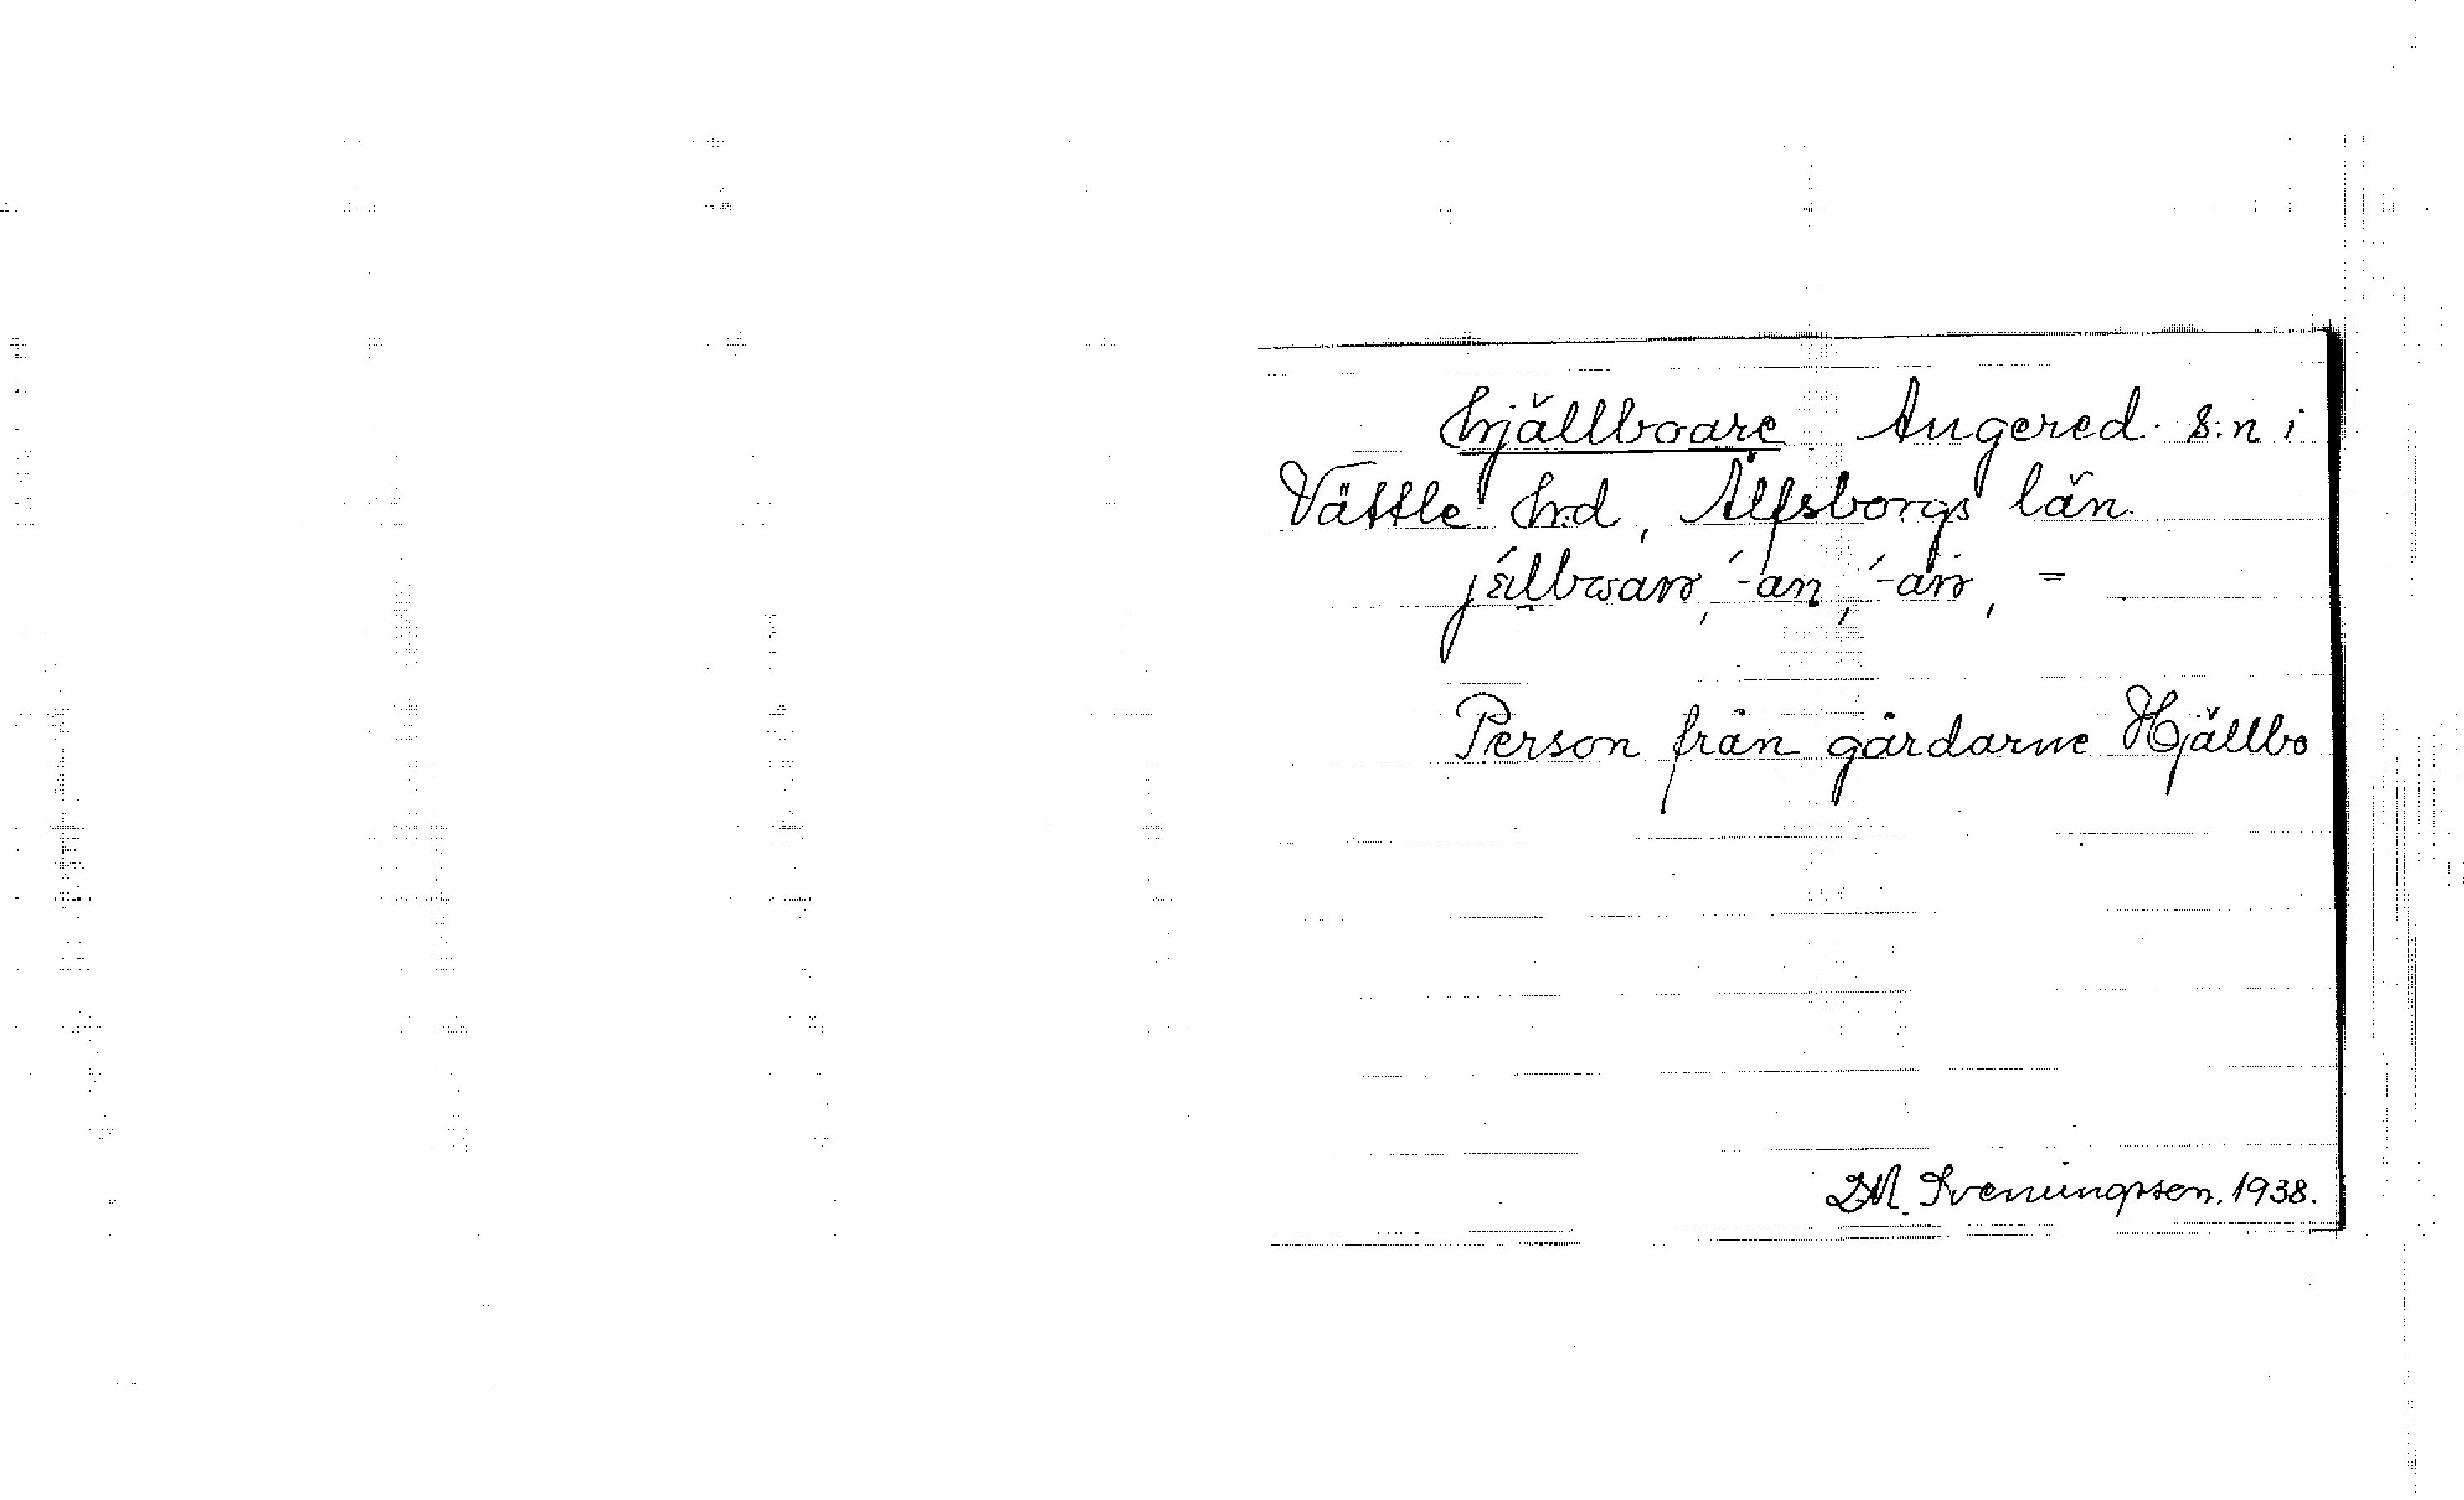 hjällboare Angered s:n i
Vättle hd, Älfsborgs län.
Person från gårdarne Hjällbo
D.M. Sveningsson. 1938.